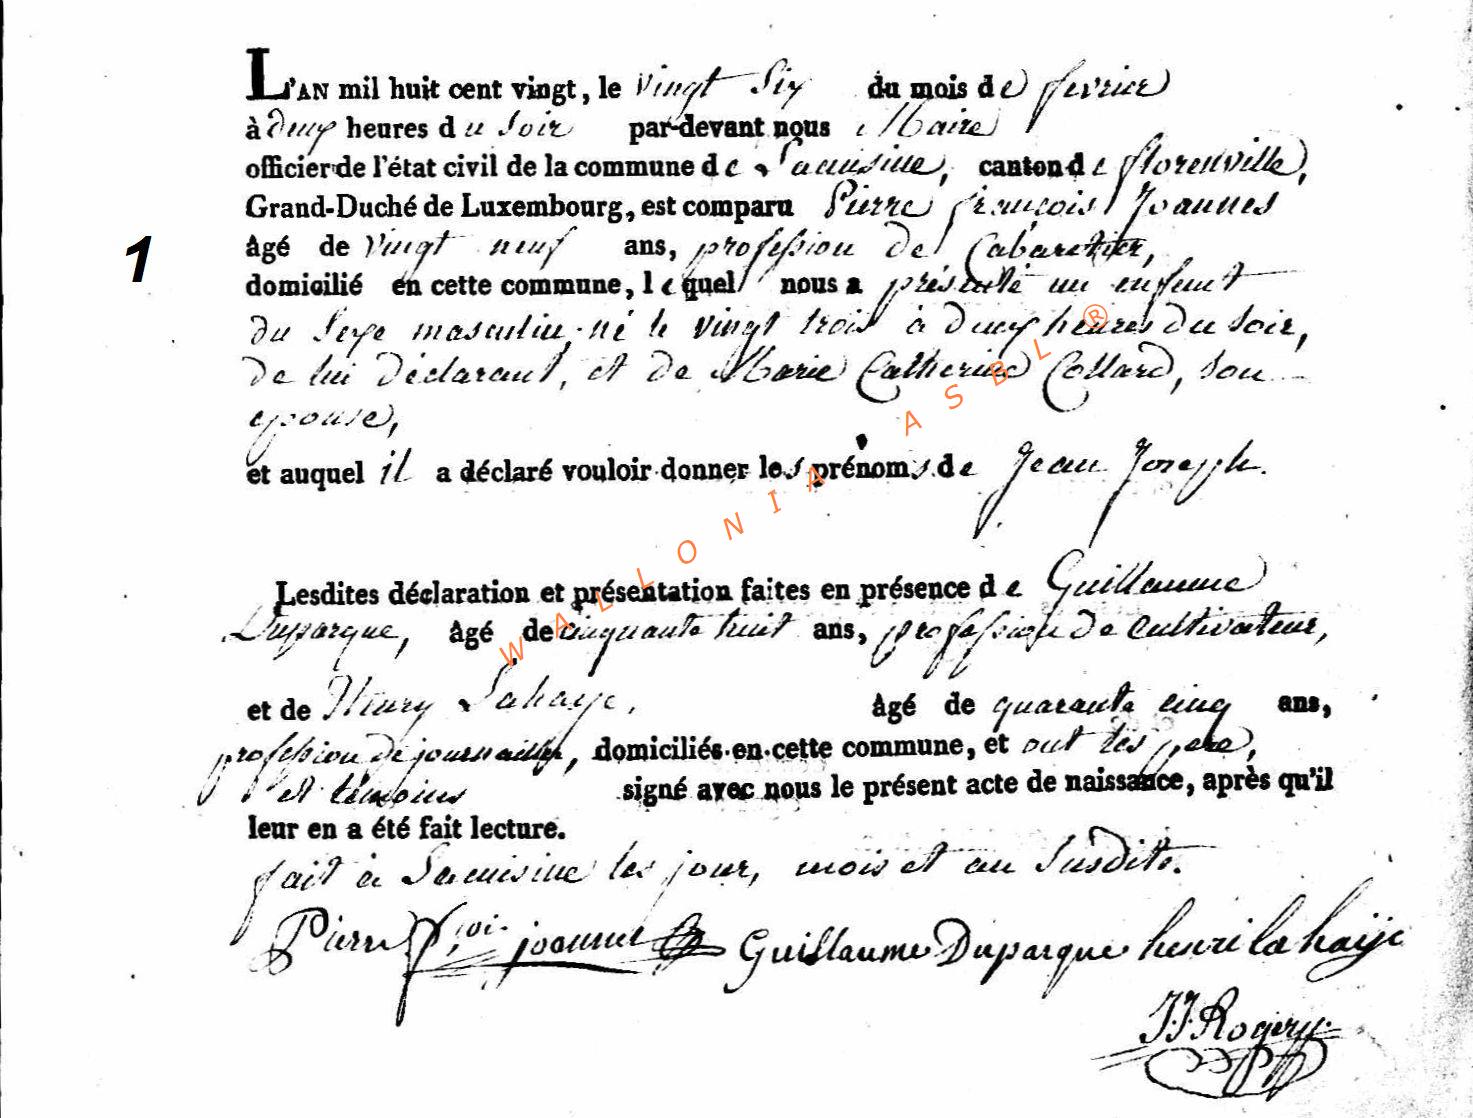 L'AN mil huit cent vingt, le vingt Six du mois de fevrier
à deux heures du soir par-devant nous Maire
officier de l'état civil de la commune de Lacuisine, canton de florenville,
Grand-Duché de Luxembourg, est comparu Pierre françois Joannes
1
âgé de vingt neuf ans, profession de Cabaretier,
domicilié en cette commune, lequel nous a présenté un enfant
du Sexe masculin, né le vingt trois à deux heures du soir,
de lui déclarant, et de Marie Catherine Collard, son
epouse,
et auquel il a déclaré vouloir donner les prénoms de Jean Joseph.
Lesdites déclaration et présentation faites en présence de Guillaume
Duparque, âgé de cinquante huit ans, profession de cultivateur,
et de Henry Lahaye, âgé de quarante cinq ans,
profession de journailler, domiciliés en cette commune, et ont les pere,
et témoins signé avec nous le présent acte de naissance, après qu'il
leur en a été fait lecture.
fait à Lacuisine les jour, mois et an Susdits.
Pierre fçoi. joannes Guillaume Duparque henri la haije
J.J. Rogery.
WALLONIA ASBL ®